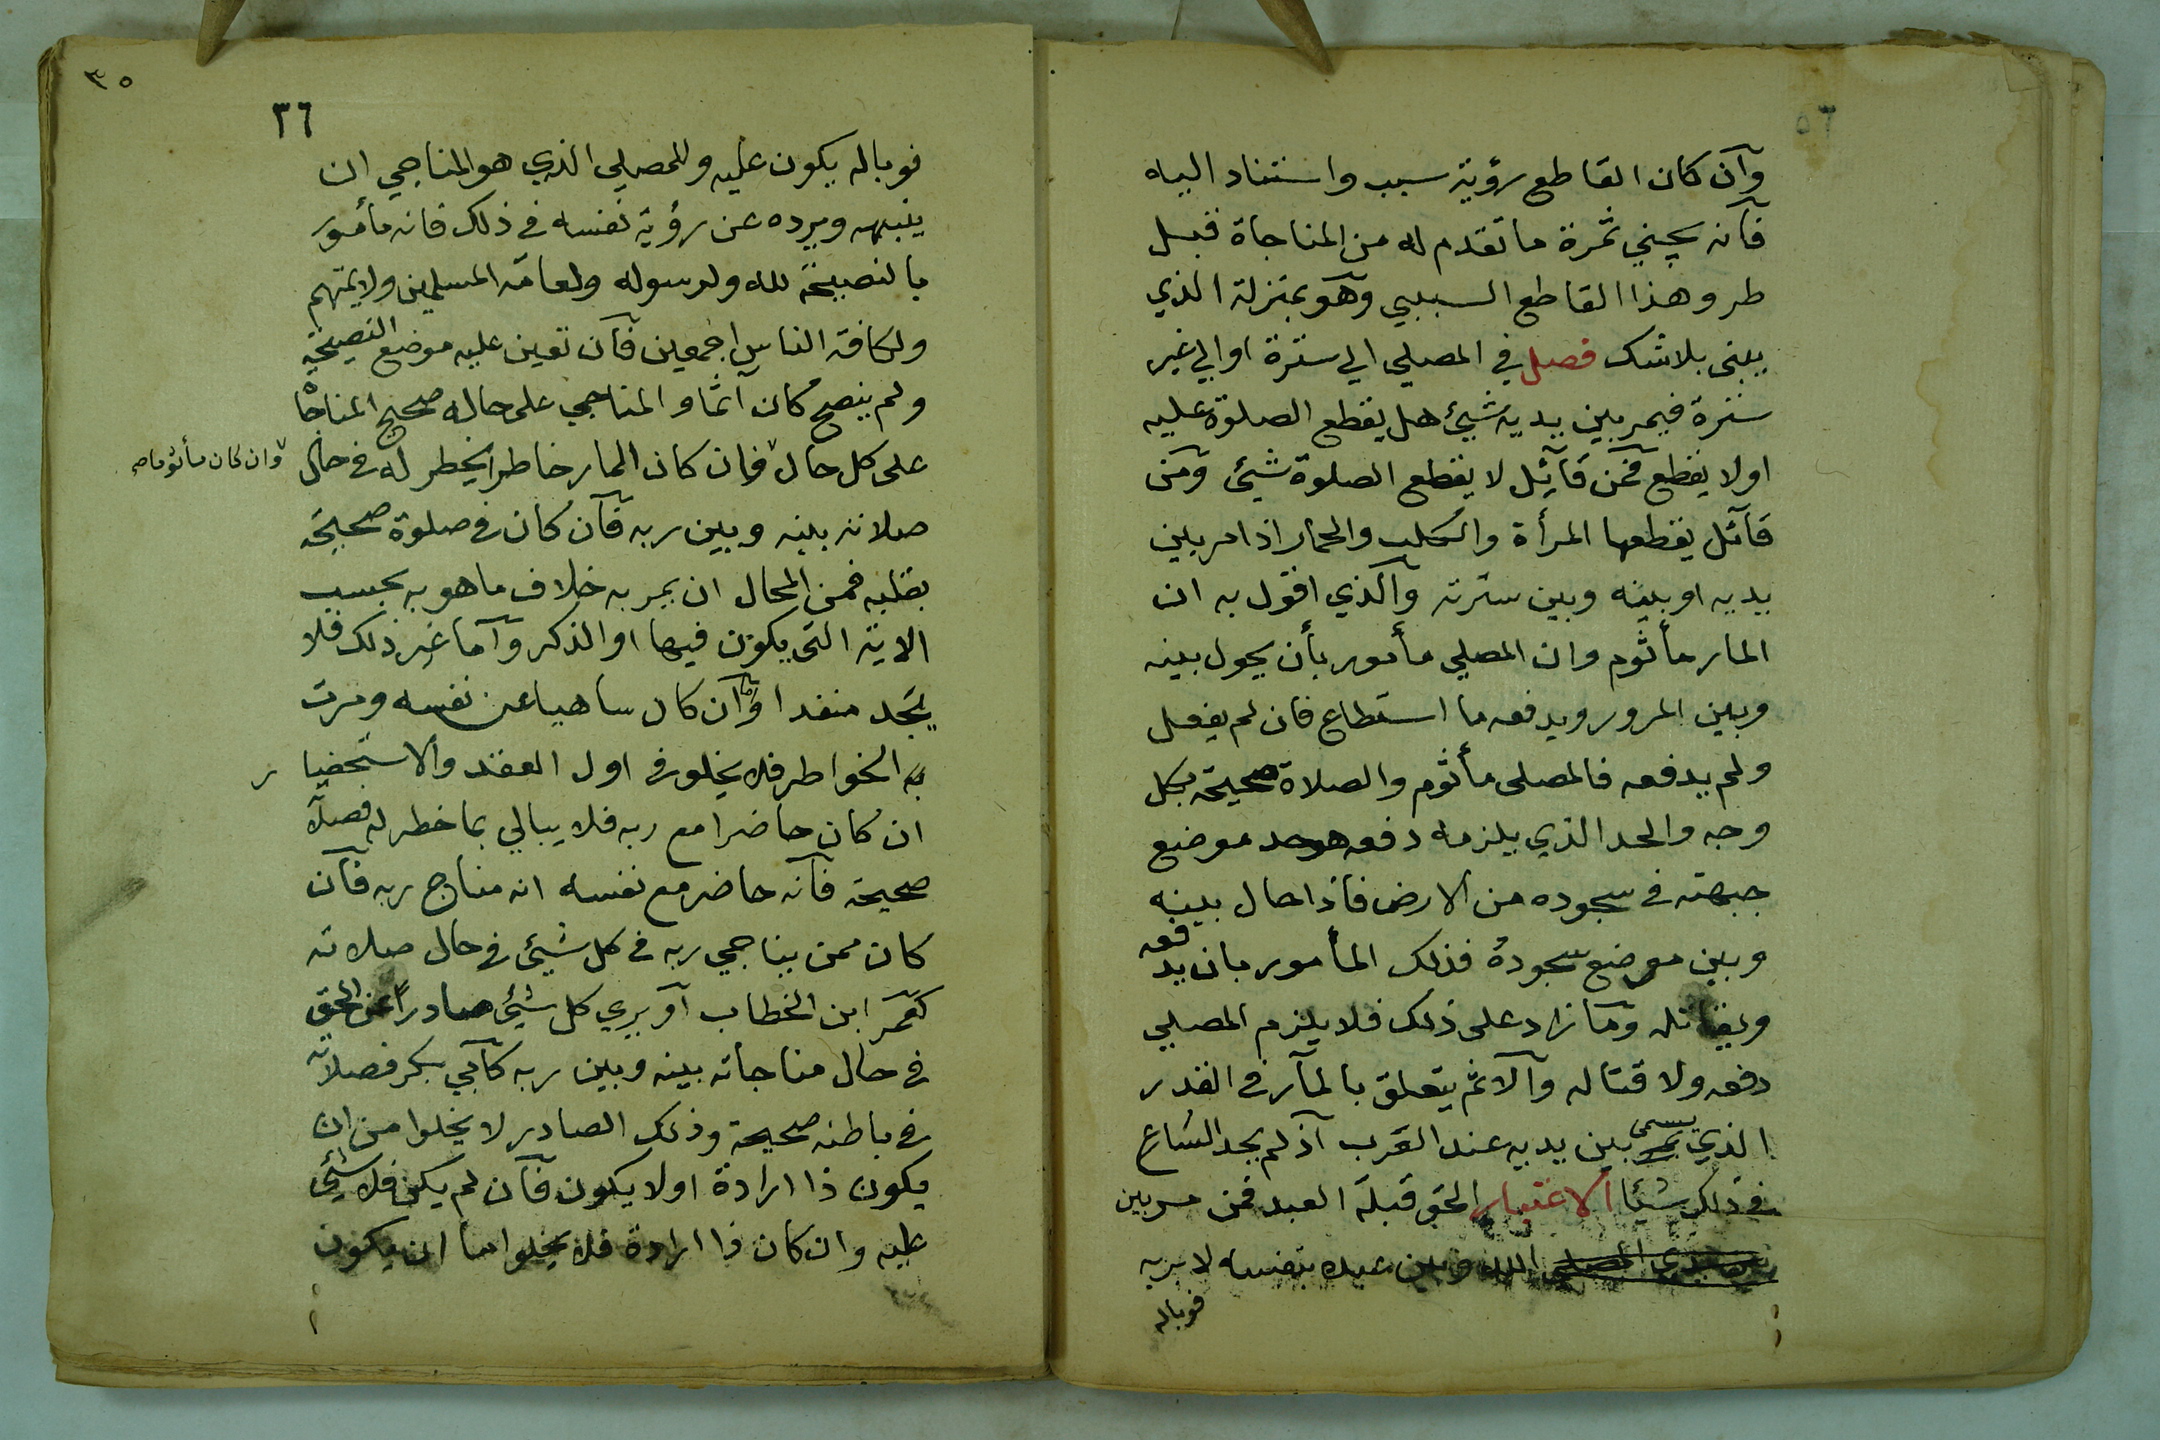 وآن كان القاطع رؤية سبب واستناد اليه
فآنه يجني ثمرة ما تقدم له من المناجاة قبل
طرو هذا القاطع السببي وهو بمنزلة الذي
يبنى بلا شك فصل في المصلي الي سترة او الي غير
سترة فيمر بين يديه شيئ هل يقطع الصلوة عليه
اولا يقطع فمن قآئل لا يقطع الصلوة شيئ ومن
قآئل يقطعها المرأة والكلب والحمار اذا مر بين
يديه او بينه وبين سترته والذي اقول به ان
المار مأثوم وان المصلي مأمور بأن يحول بينه
وبين المرور ويدفعه ما استطاع فان لم يفعل
ولم يدفعه فالمصلى مأثوم والصلاة صحيحة بكل
وجه والحد الذي يلزمه دفعه هو حد موضع
جبهته في سجوده من الارض فاذا حال بينه
وبين موضع سجوده فذلك المأمور بان يدفعه
ويقاتله وما زاد على ذلك فلا يلزم المصلي
دفعه ولا قتاله والآثم يتعلق بالمآر في القدر
الذي يسمى بين يديه عند العرب آذ لم يجد الشاع
في ذلك شيئا الاعتبار الحق قبلة العبد فمن مر بين
الله وبين عبده بنفسه لا بربه
فوباله
٣٥
٣٦
فوباله يكون عليه وللمصلي الذي هو المناجي ان
ينبهه ويرده عن رؤية نفسه في ذلك فانه مأمور
بالنصيحة لله ولرسوله ولعامة المسلمين ولايمتهم
ولكافة الناس اجمعين فآن تعين عليه موضع النصيحة
ولم ينصح كان آثما والمناجي على حاله صحيح المناجاة
على كل حال فان كان المار خاطر يخطر له في حال
وان كان مأثوما صح
صلاته بينه وبين ربه فآن كان في صلوة صحيحة
بقلبه فمن المحال ان يمر به خلاف ما هو به بحسب
الاية التى يكون فيها او الذكر وآما غير ذلك فلا
يجد منفدا وآما ان كان ساهيا عن نفسه ومرت
به الخواطر فلا يخلو في اول العقد والاستحضا ر
ان كان حاضرا مع ربه فلا يبالي بما خطر له فصلاته
صحيحة فآنه حاضر مع نفسه انه مناج ربه فآن
كان ممن يناجي ربه في كل شيئ في حال صلاته
كعمر ابن الخطاب آو يري كل شيئ صادرا عن الحق
في حال مناجاته بينه وبين ربه كآبي بكر فصلاته
في باطنه صحيحة وذلك الصادر لا يخلوا من ان
يكون ذا ارادة اولا يكون فآن لم يكن فلا شيئ
عليه وان كان ذا ارادة فلا يخلوا اما ان يكون